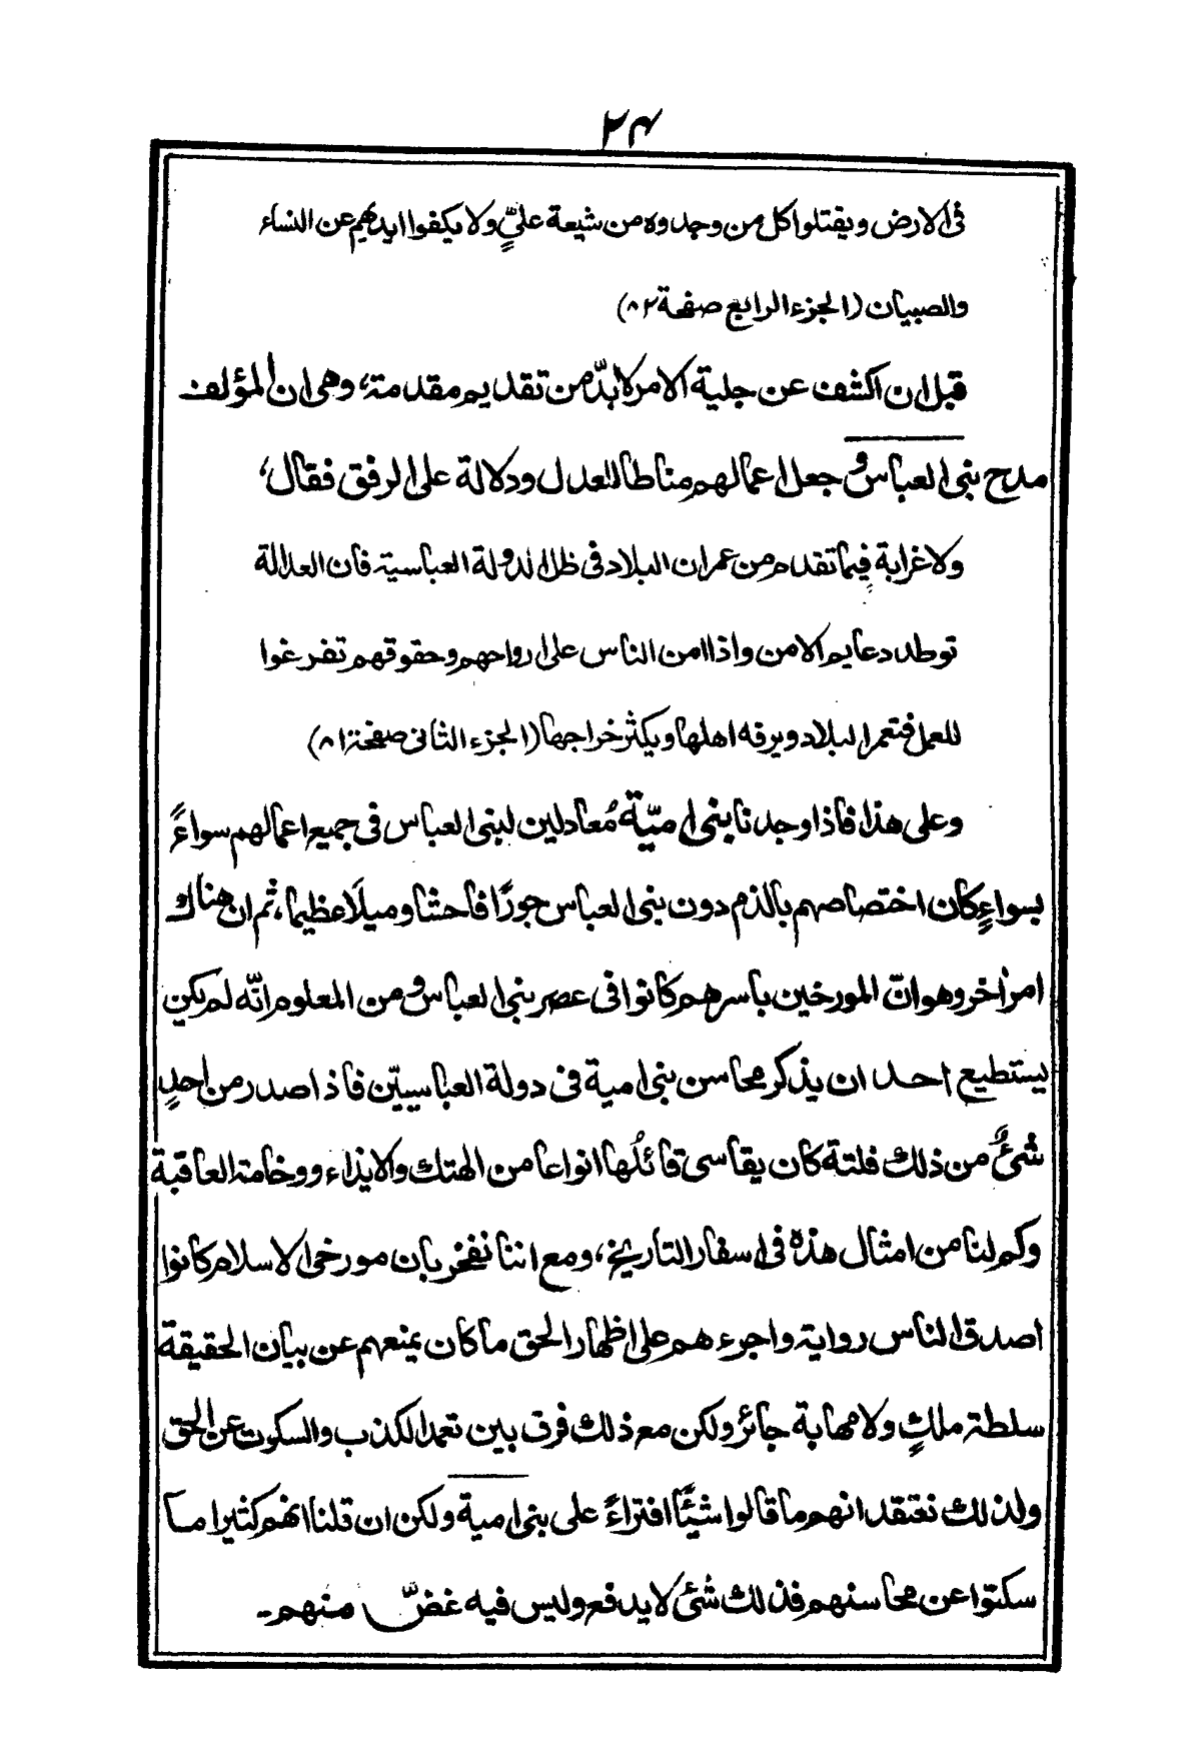 ٢٤
فى الارض ويقتلوا كل من وجدوه من شيعة علىٍّ ولا يكفوا ايديهم عن النساء
والصبيان (الجزء الرابع صفحة ٨٢)
قبل ان اكشف عن جلية الامر لا بدّ من تقديم مقدمة، وهى ان المؤلف
مدح بنى العباس و جعل اعمالهم مناطا للعدل ودلالة على الرفق فقال،
ولا غرابة فيما تقدم من عمران البلاد فى ظل الدولة العباسية فان العدالة
توطد دعايم الامن واذا امن الناس على ارواحهم وحقوقهم تفرغوا
للعمل فتعمر البلاد ويرفه اهلها ويكثر خراجها (الجزء الثانى صفحة ٨١)
وعلى هذا فاذا وجدنا بنى اميّة مُعادلين لبنى العباس فى جميع اعمالهم سواءً
بسواءٍ كان اختصاصهم بالذم دون بنى العباس جورًا فاحشا وميلًا عظيما، ثم ان هناك
امر اٰخر وهو انّ المورخين باسرهم كانوا فى عصر بنى العباس و من المعلوم انّه لم يكن
يستطيع احد ان يذكر محاسن بنى امية فى دولة العباسيّين فاذا صدر من احدٍ
شئٌ من ذلك فلتة كان يقاسى قائلُها انواعا من الهتك والايذاء ووخامة العاقبة
وكم لنا من امثال هذه فى اسفار التاريخ، ومع اننا نفخر بان مورخى الاسلام كانوا
اصدق الناس رواية واجرءهم على اظهار الحق ما كان يمنعهم عن بيان الحقيقة
سلطة ملكٍ ولا مهابة جائر ولكن مع ذلك فرق بين تعمد الكذب والسكوت عن الحق
ولذلك نعتقد انهم ما قالوا شيئًا افتراءً على بنى امية ولكن ان قلنا انهم كثيرا ما
سكتوا عن محاسنهم فذلك شئ لا يدفع وليس فيه غضّ منهم-